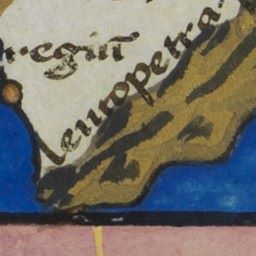 regiũ
leucopetra